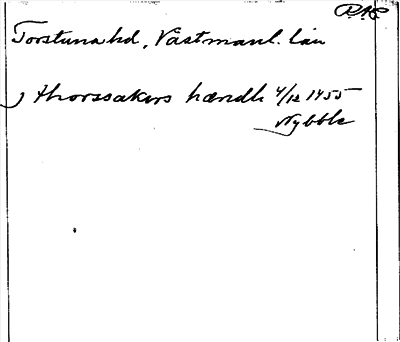 RAP
Torstuna hd, Västmanl. län
j thorssakers hændh 4/12 1455
Nybble